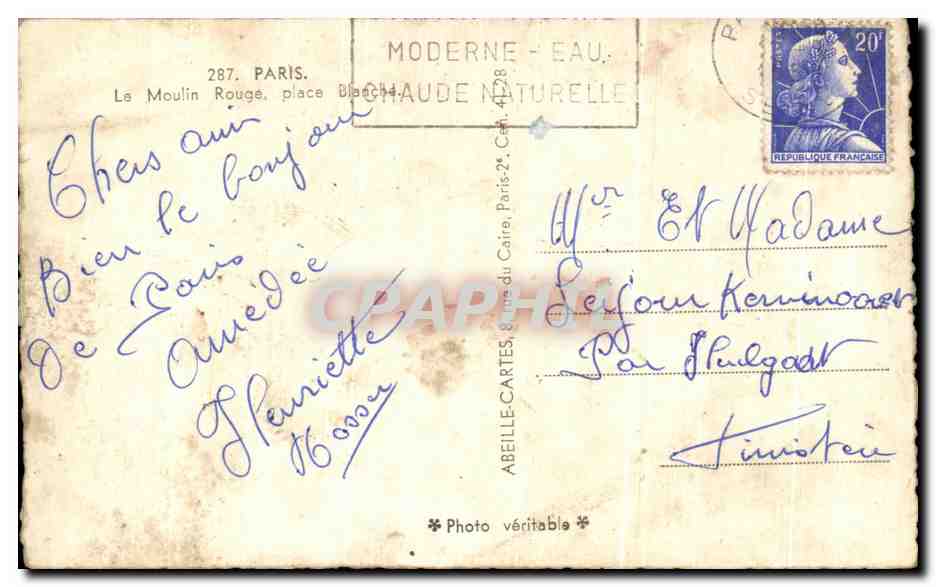 MODERNE - EAU
CHAUDE NATURELLE
287. PARIS.
Le Moulin Rouge, place Blanche.
POSTES
20F
REPUBLIQUE FRANÇAISE
Chers amis
Bien le bonjour
de Paris
Amédée
Henriette
ABEILLE-CARTES, 8, rue du Caire, Paris-2e. Cen. 41-28
Mr Et Madame
Par
Finistère
CPAPHIL
Photo véritable